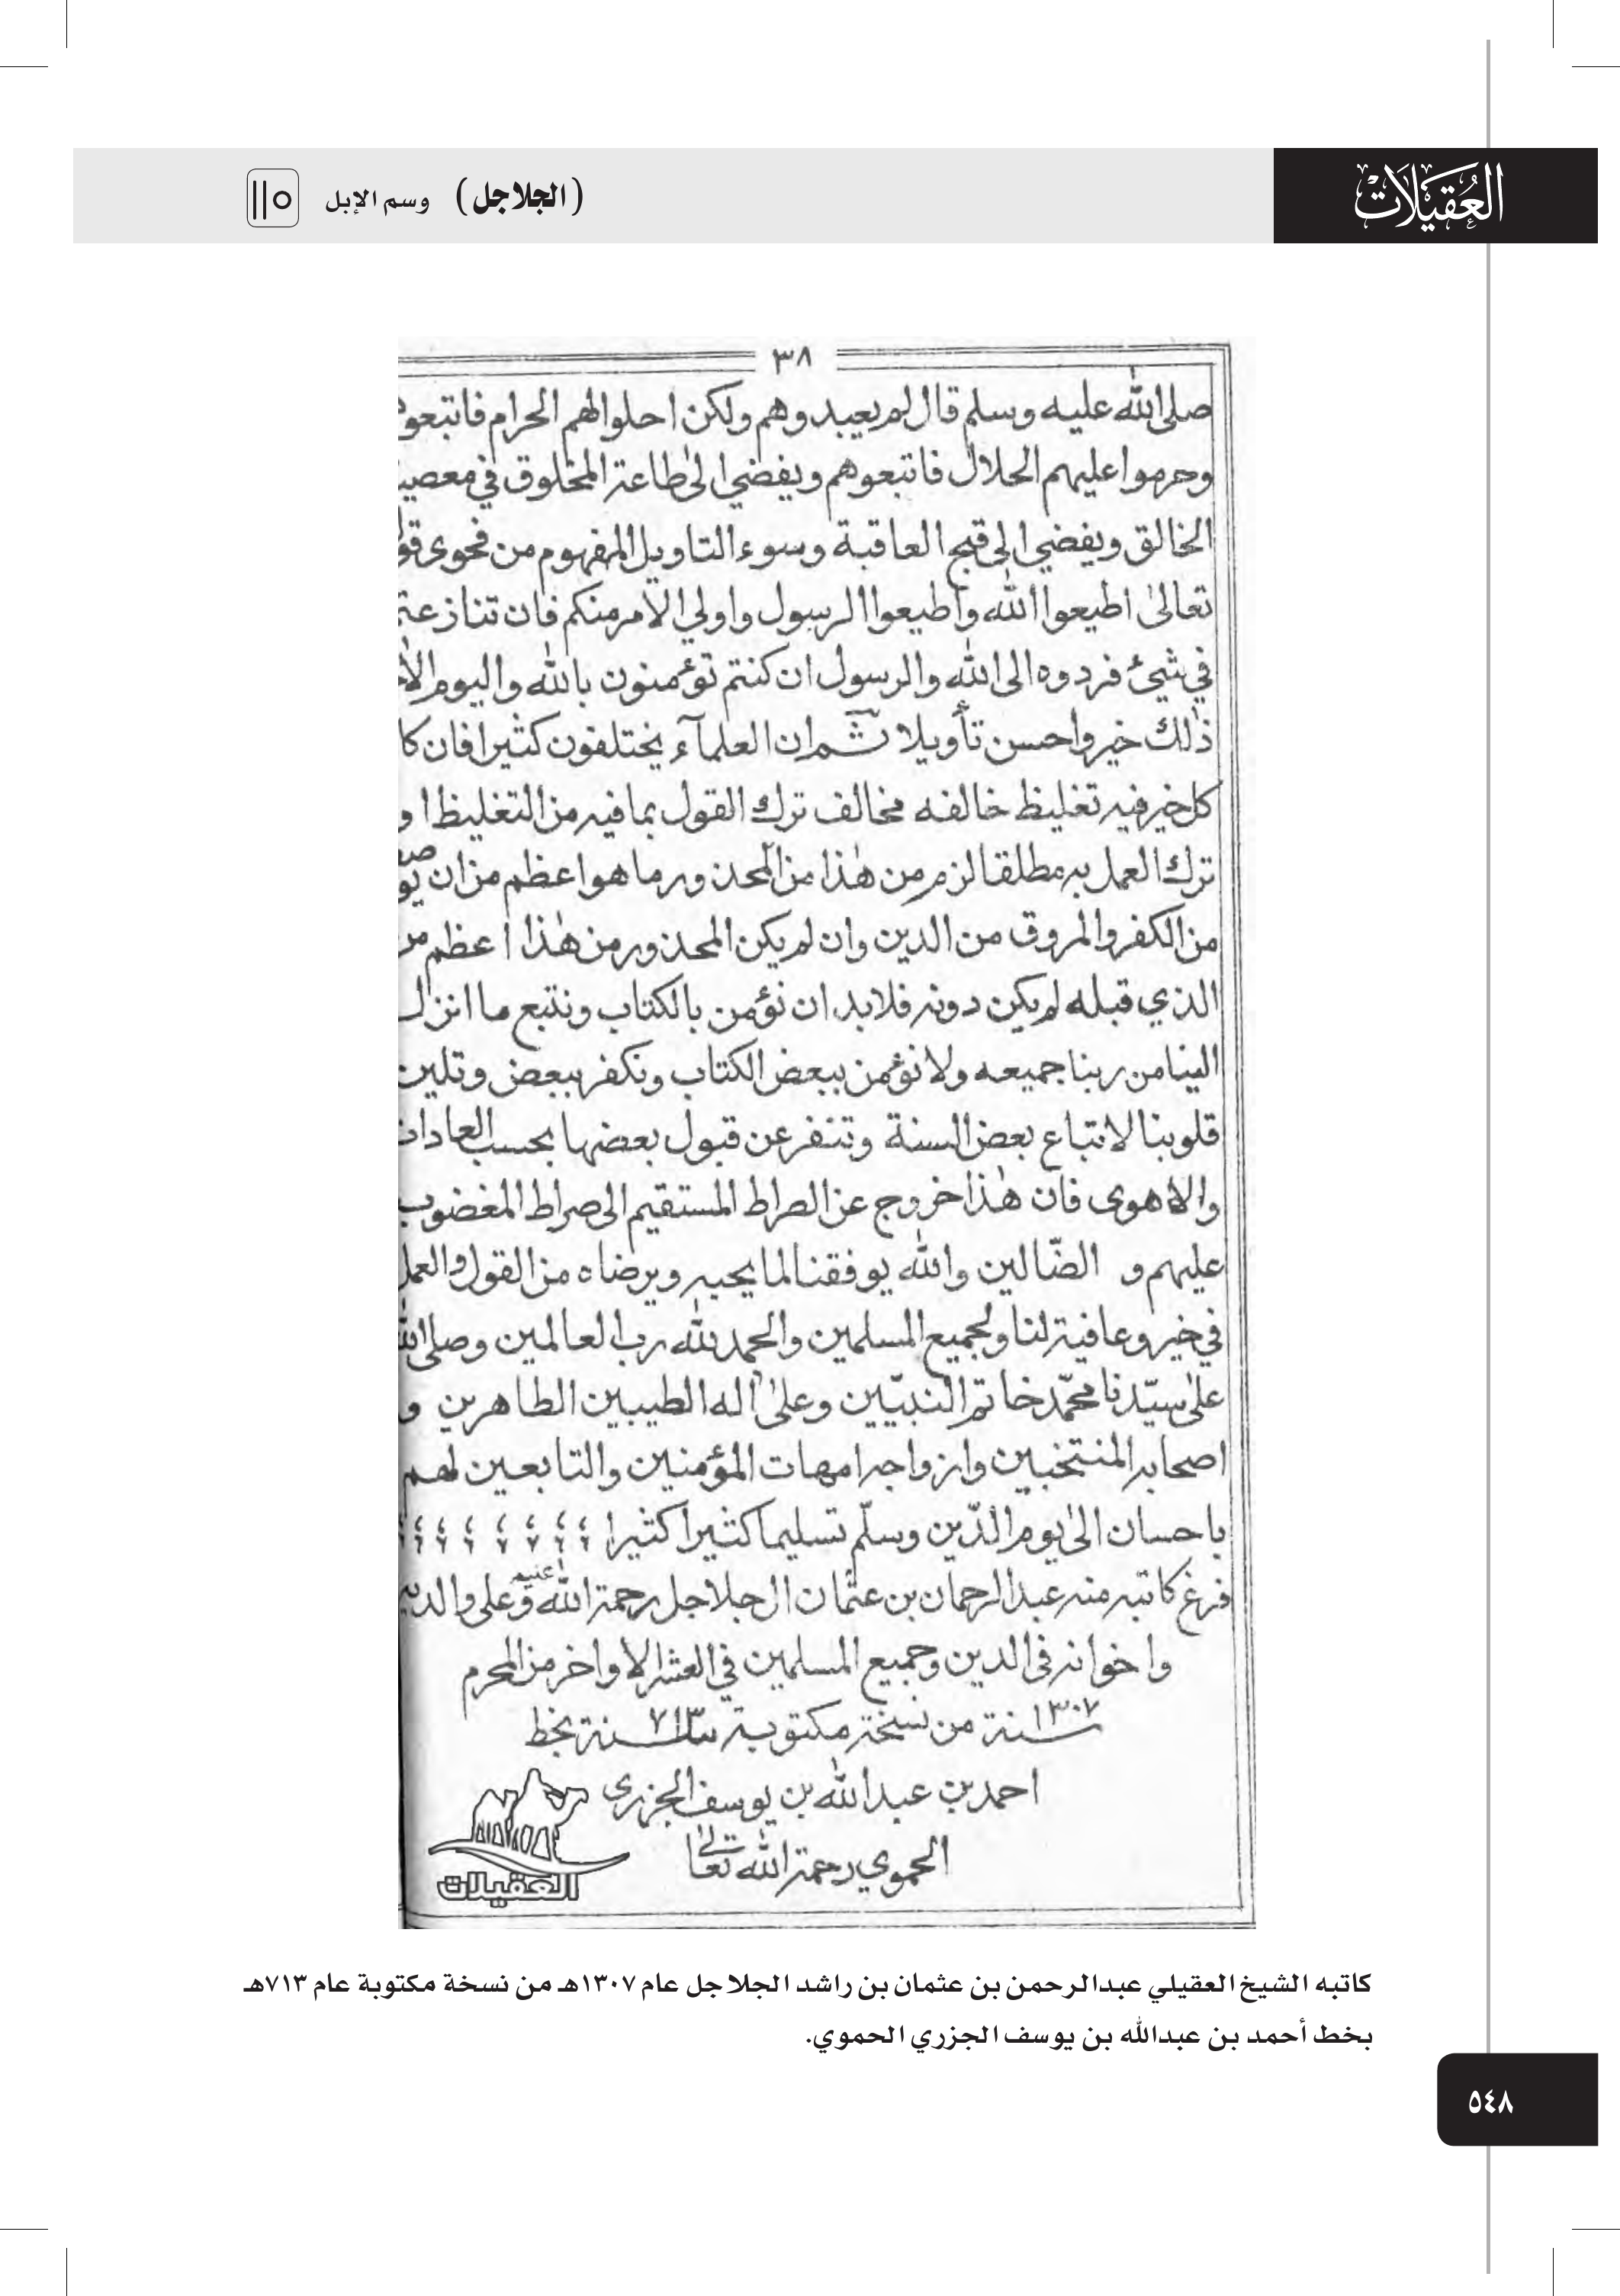 العقيلات
(الجلاجل) وسم الإبل
٣٨
صلى الله عليه وسلم قال لم يعبدوهم ولكن احلوا لهم الحرام فاتبعو
وحرموا عليهم الحلال فاتبعوهم ويفضي الى طاعة المخلوق في معصية
الخالق ويفضي الى قبح العاقبة وسوء التاويل المفهوم من فحوى قو
تعالى اطيعوا الله واطيعوا الرسول واولي الأمر منكم فان تنازعتم
في شيئ فردوه الى الله والرسول ان كنتم تؤمنون بالله واليوم الآخ
ذلك خير واحسن تأويلا ثم ان العلمآء يختلفون كثيرا فان كا
كل خبر فيه تغليظ خالفه مخالف ترك القول بما فيه من التغليظ او
ترك العمل به مطلقا لزم من هذا من المحذور ما هو اعظم من ان يوصف
من الكفر والمروق من الدين وان لم يكن المحذور من هذا اعظم من
الذي قبله لم يكن دونه فلا بد ان نؤمن بالكتاب ونتبع ما انزل
الينا من ربنا جميعه ولا نؤمن ببعض الكتاب ونكفر ببعض وتلين
قلوبنا لاتباع بعض السنة وتنفر عن قبول بعضها بحسب العادات
والاهوى فان هذا خروج عن الصراط المستقيم الى صراط المغضوب
عليهم و الضّالين والله يوفقنا لما يحبه ويرضاه من القول والعمل
في خير وعافية لنا ولجميع المسلمين والحمد لله رب العالمين وصلى الله
على سيّدنا محمّد خاتم النبيّين وعلى آله الطيبين الطاهرين و
اصحابه المنتخبين وازواجه امهات المؤمنين والتابعين لهم
باحسان الى يوم الدّين وسلّم تسليما كثيرا كثيرا
فرغ كاتبه منه عبد الرحمان بن عثمان ال جلاجل رحمة الله عليه وعلى والديه
واخوانه في الدين وجميع المسلمين في العشر الاواخر من المحرم
سنة ١٣٠٧ من نسخة مكتوبة سنة ٧١٣ بخط
احمد بن عبد الله بن يوسف الجزري
الحموي رحمة الله تعالى
العقيلات
كاتبه الشيخ العقيلي عبدالرحمن بن عثمان بن راشد الجلاجل عام ١٣٠٧هـ من نسخة مكتوبة عام ٧١٣هـ
بخط أحمد بن عبدالله بن يوسف الجزري الحموي.
٥٤٨